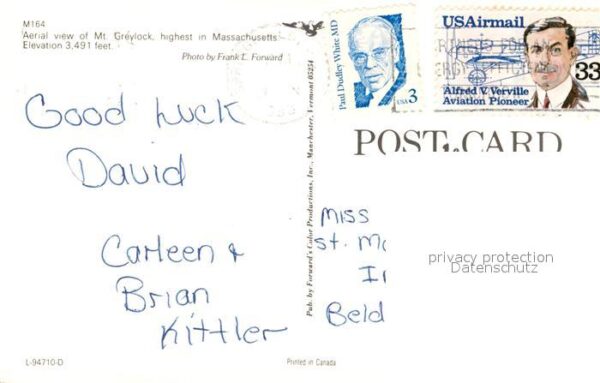 M164
Aerial view of Mt. Greylock, highest in Massachusetts
Elevation 3,491 feet.
Photo by Frank L. Forward
Good Luck
David
Carleen &
Brian
Kittler
L-94710-D
Pub. by Forward's Color Productions, Inc., Manchester, Vermont 05254
Printed in Canada
Paul Dudley White MD
USA 3
USAirmail
33
Alfred V. Verville
Aviation Pioneer
POST CARD
Miss
St. M
I
Beld
privacy protection
Datenschutz